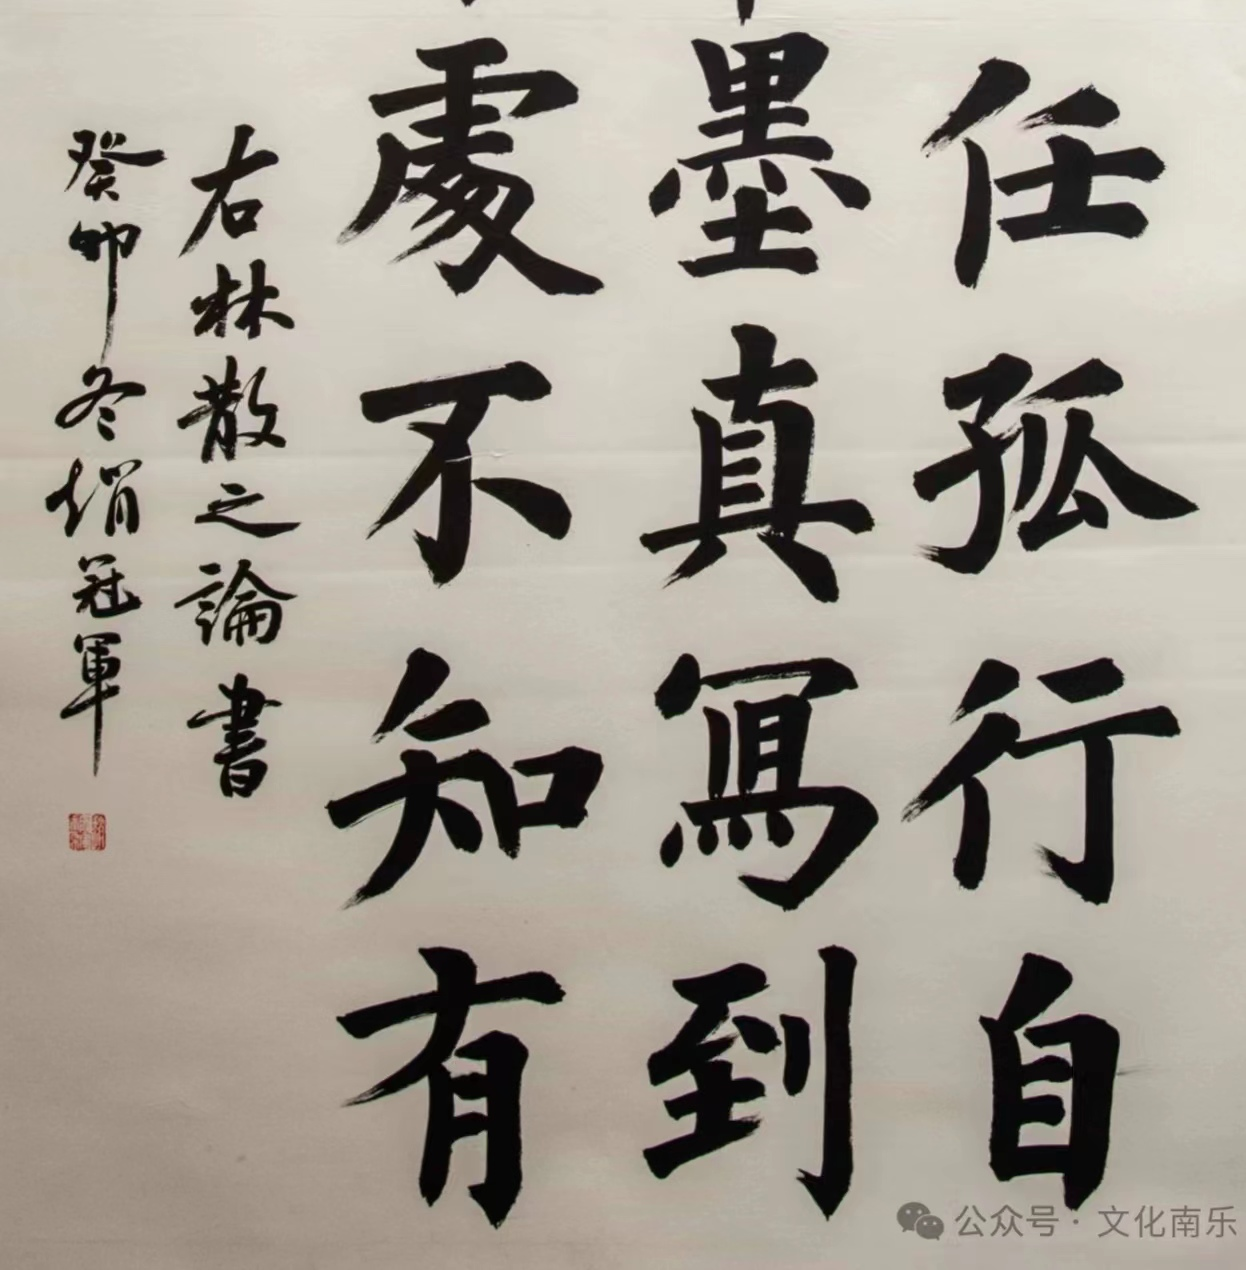 任孤行自
墨真寫到
處不知有
右林散之論書
癸卯冬
冠軍
公众号·文化南乐